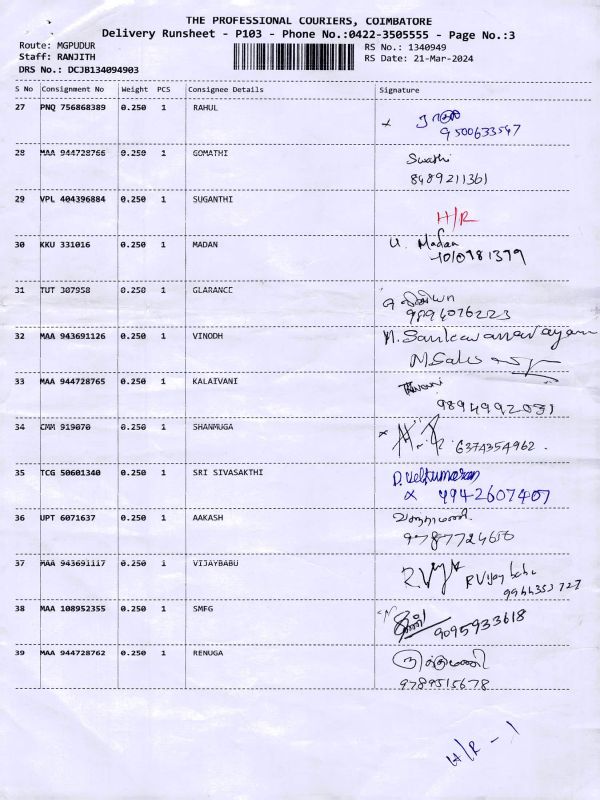 THE PROFESSIONAL COURIERS, COIMBATORE
Delivery Runsheet - P103 - Phone No.:0422-3505555 - Page No.:3
Route: MGPUDUR RS No.: 1340949
Staff: RANJITH RS Date: 21-Mar-2024
DRS No.: DCJB134094903
S No Consignment No Weight PCS Consignee Details Signature
27 PNQ 756868389 0.250 1 RAHUL
9500633547
28 MAA 944728766 0.250 1 GOMATHI Swathi
8489211361
29 VPL 404396884 0.250 1 SUGANTHI
H/R
30 KKU 331016 0.250 1 MADAN U. Madan
31 TUT 307958 0.250 1 GLARANCE
32 MAA 943691126 0.250 1 VINODH
33 MAA 944728765 0.250 1 KALAIVANI
9894992031
34 CMM 919070 0.250 1 SHANMUGA
6374354962.
35 TCG 50601340 0.250 1 SRI SIVASAKTHI D. Velkumaran
9942607407
36 UPT 6071637 0.250 1 AAKASH
9787724616
37 MAA 943691117 0.250 1 VIJAYBABU R Vijay babu
38 MAA 108952355 0.250 1 SMFG
9095933618
39 MAA 944728762 0.250 1 RENUGA
9789515678
H/R - 1